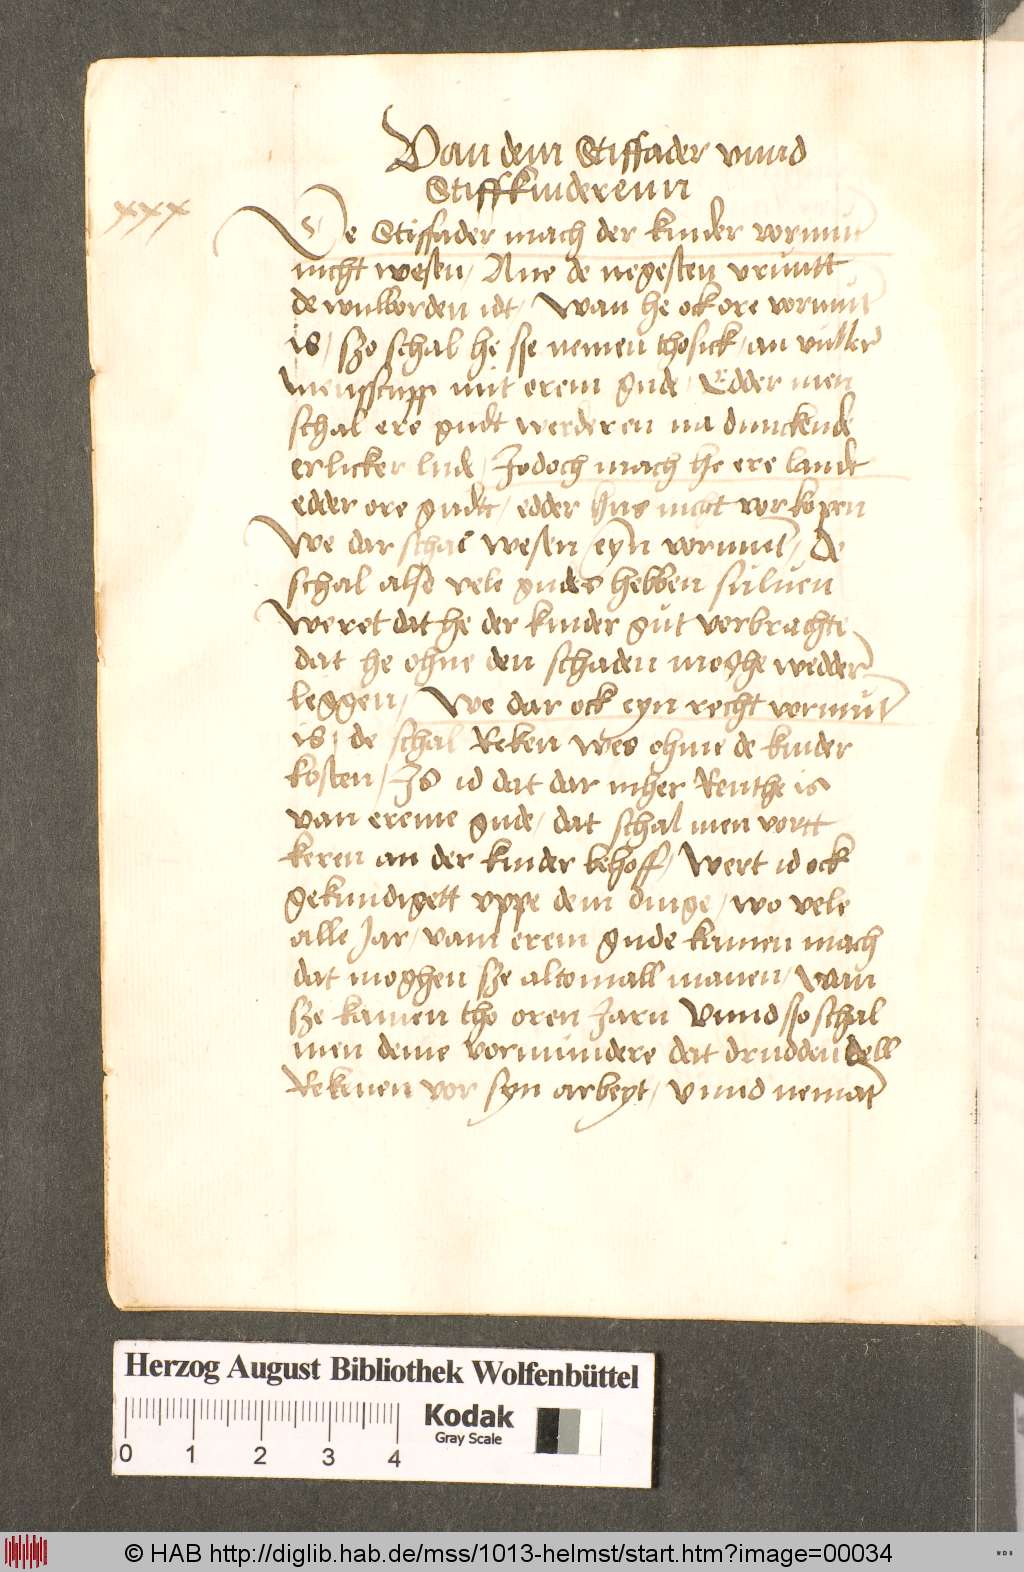 Van dem Stiffader vnnd
Stiffkinderenn
xxx
De Stiffader mach der kinder vormunt
nicht wesen / Ane de negesten vruntt
de wulborden idt / Wan he ock ore vormunt
is / szo schal he sse nemen thosick / an vuller
menscupp mit erem gude / Edder men
schal ere gudt werderen na dunckende
erlicker lude / Jodoch mach he ere landt
edder ore gudt / edder hus nicht vorkopen
We dar schal wesen eyn vormunt / de
schal also vele gudes hebben suluen
Weret dat he der kinder gut vorbrachte
dat he ohne den schaden moghe wedder
leggen / We dar ock eyn recht vormunt
is / de schal Reken wes ohme de kinder
kosten / Is id dat dar mher Renthe is
van ereme gude / dat schal men vortt
keren an der kinder behoff / Wert id ock
gekundigett vppe dem dinge / wo vele
alle Jar / vam erem gude kamen mach
dat moghen sze altomall manen / Wan
sze kamen tho oren Jarn Vnnd sso schal
men deme vormundere dat drudden dell
Rekenen vor syn arbeyt / Vnnd nemat
Herzog August Bibliothek Wolfenbüttel
Kodak
Gray Scale
0 1 2 3 4
© HAB http://diglib.hab.de/mss/1013-helmst/start.htm?image=00034
WDB